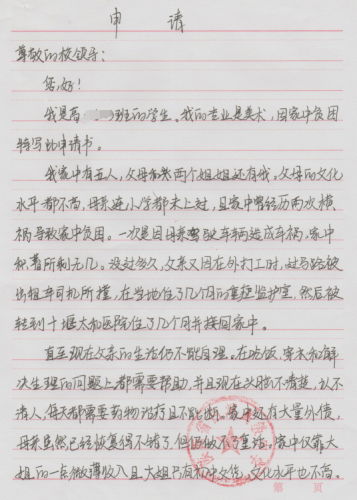 申 请
尊敬的校领导：
您，好！
我是高 班的学生。我的专业是美术，因家中贫困
特写此申请书。
我家中有五人，父母和两个姐姐还有我。父母的文化
水平都不高，母亲连小学都未上过，且家中曾经历两次横
祸导致家中贫困。一次是因母亲驾驶车辆造成车祸，家中
积蓄所剩无几。没过多久，父亲又因在外打工时，过马路被
出租车司机所撞，在当地住了几个月的重症监护室，然后被
转到十堰太和医院住了几个月并接回家中。
直至现在父亲的生活仍不能自理。在吃饭、穿衣和解
决生理的问题上都需要帮助，并且现在头脑不清楚，认不
清人，每天都需要药物治疗且不能断。家中还有大量外债，
母亲虽然已经恢复得不错了，但仍做不了重活。家中仅靠大
姐的一点微薄收入且大姐只有初中文凭，文化水平也不高。
第 页